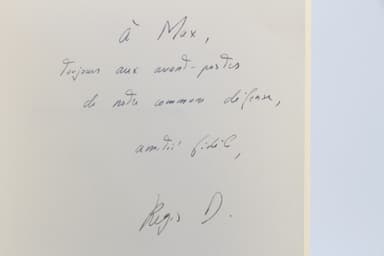 à Max,
toujours aux avant-postes
de notre commune défense,
amitié fidèle,
Régis D.